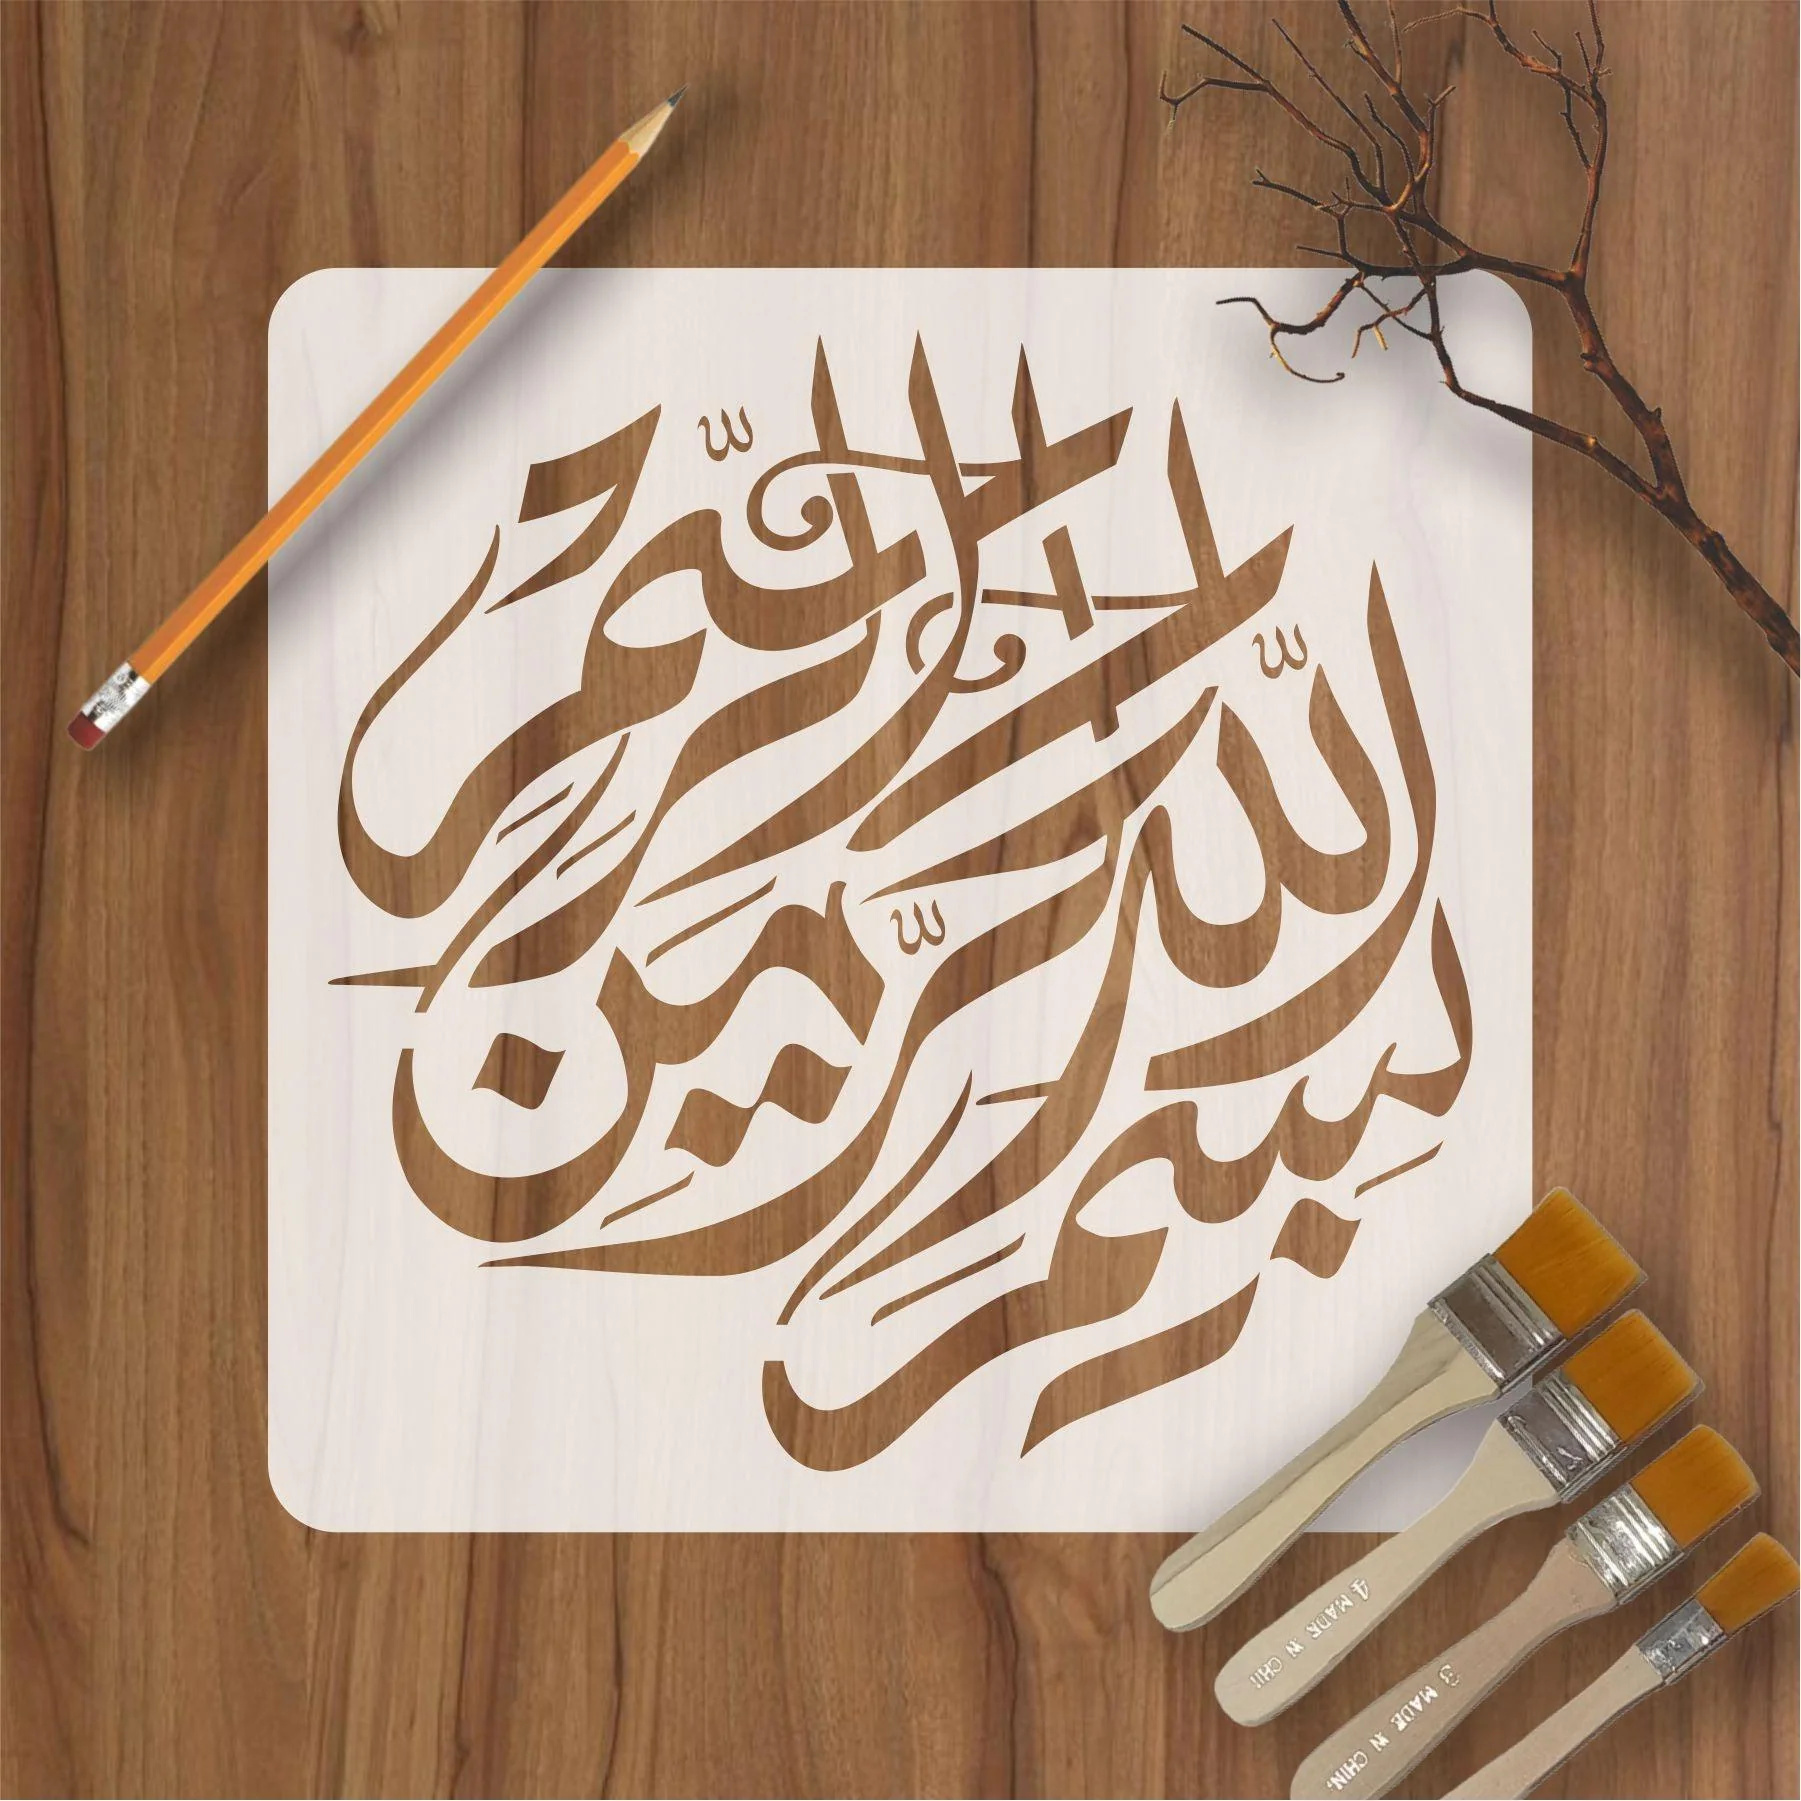 بِسمِ اللّٰهِ الرَّحمٰنِ الرَّحِيمِ
4 MADE IN CHIN
3 MADE IN CHIN